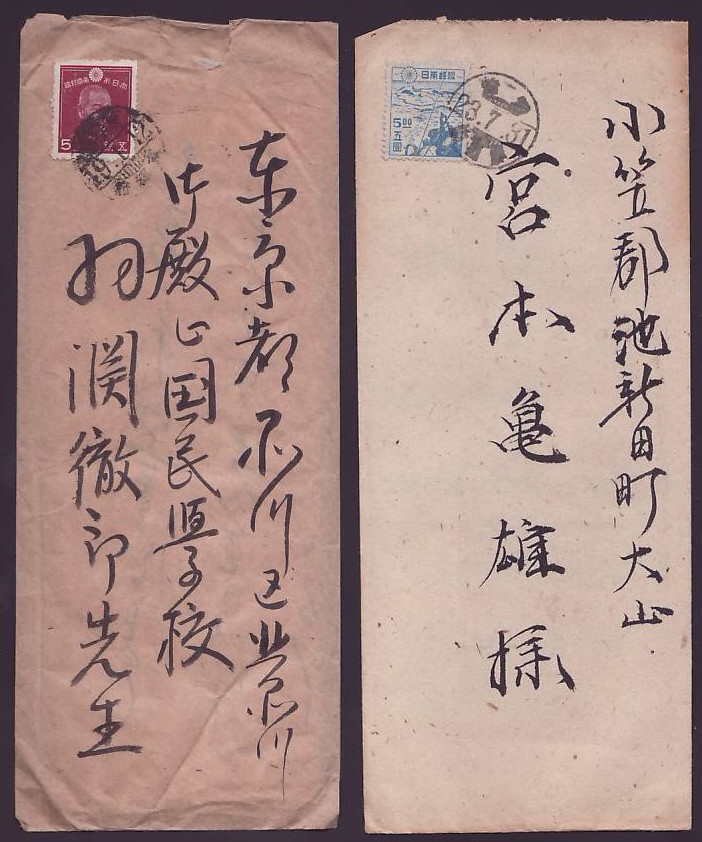 東京都品川区北品川
御殿山国民學校
羽渕徹郎先生
5
小笠郡池新田町大山
宮本亀雄様
日本郵便
5.00
五圓
23.7.31